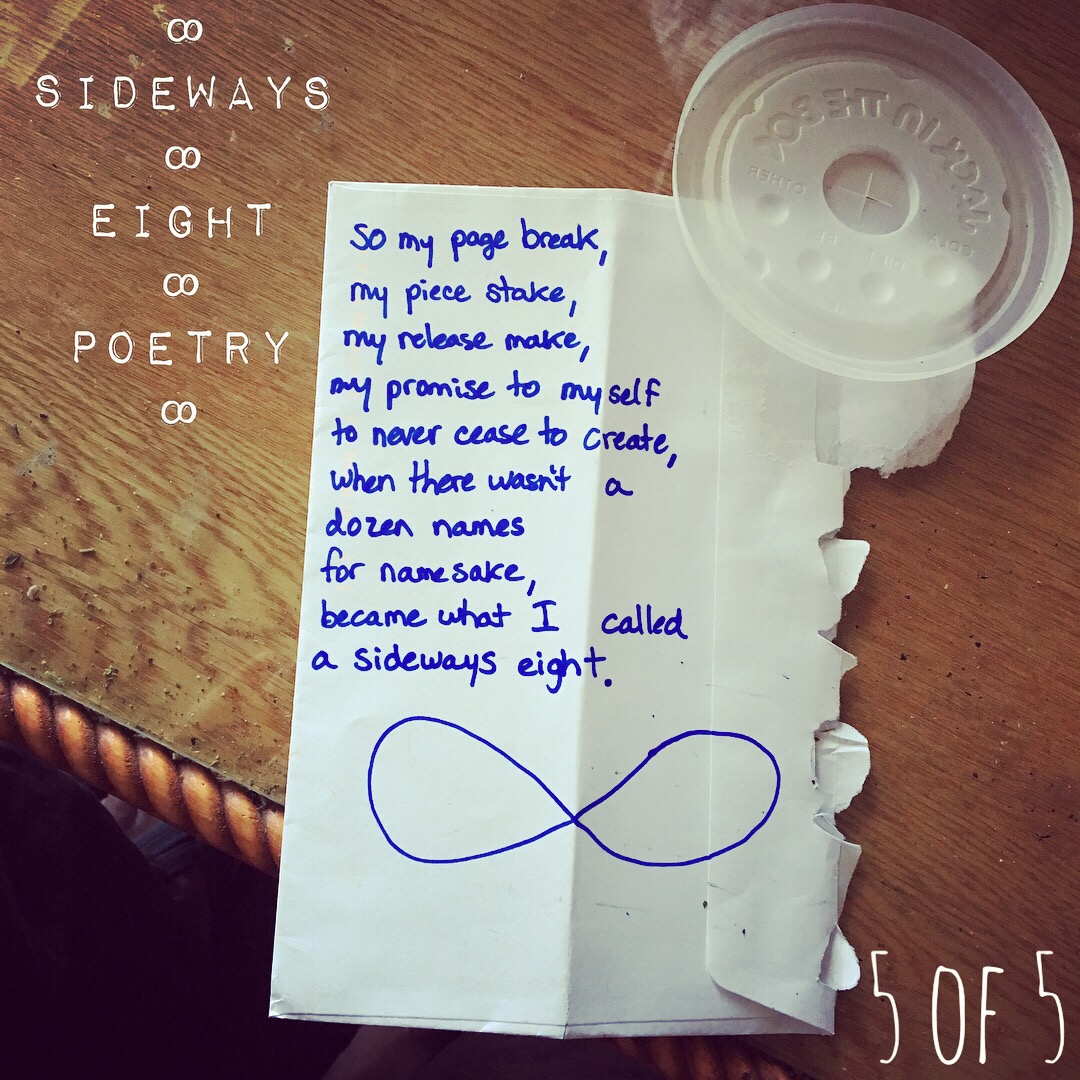 ∞
SIDEWAYS
∞
EIGHT
∞
POETRY
∞
JACK IN THE BOX
OTHER
COLA
So my page break,
my piece stake,
my release make,
my promise to myself
to never cease to create,
when there wasn't a
dozen names
for namesake,
became what I called
a sideways eight.
5 OF 5